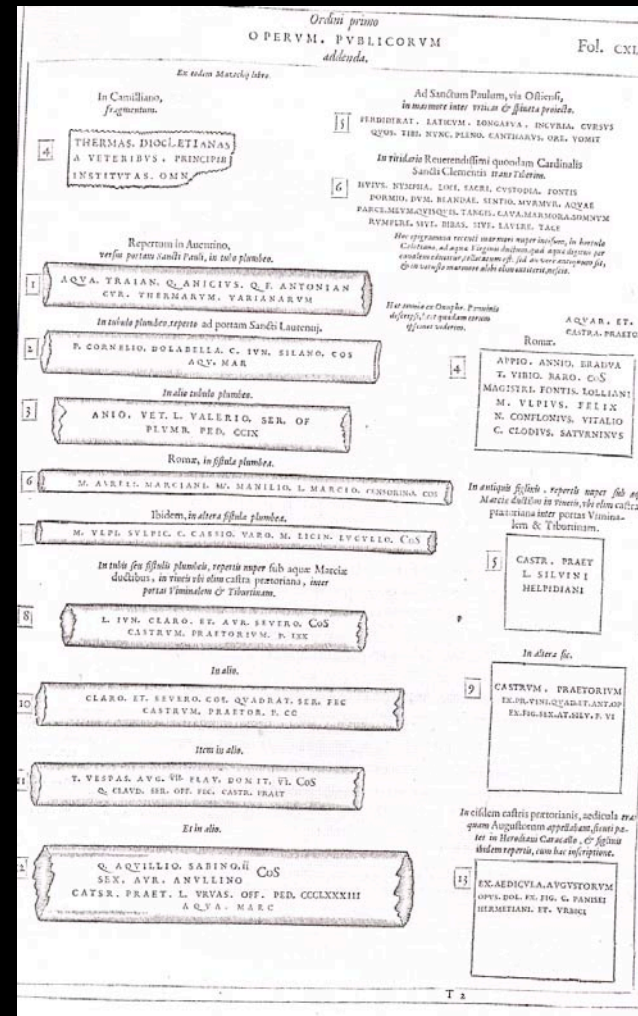 Ordini primo
OPERVM. PVBLICORVM
addenda.
Fol. CXL
Ex eodem Mazochij libro.
In Camilliano,
fragmentum.
4
THERMAS. DIOCLETIANAS
A VETERIBVS. PRINCIPIB
INSTITVTAS. OMN
Repertum in Auentino,
versus portam Sancti Pauli, in tubo plumbeo.
1
AQVA. TRAIAN. Q. ANICIVS. Q. F. ANTONIAN
CVR. THERMARVM. VARIANARVM
In tubulo plumbeo, reperto ad portam Sancti Laurentij.
2
P. CORNELIO. DOLABELLA. C. IVN. SILANO. COS
AQV. MAR
In alio tubulo plumbeo.
3
ANIO. VET. L. VALERIO. SER. OF
PLVMB. PED. CCIX
Romæ, in fistula plumbea.
6
M. AVRELI. MARCIANI. M. MANILIO. L. MARCIO. CENSORINA. COS
Ibidem, in altera fistula plumbea.
M. VLPI. SVLPIC. C. CASSIO. VARO. M. LICIN. LVCVLLO. CoS
In tubis seu fistulis plumbeis, repertis nuper sub aquæ Marciæ
ductibus, in vineis vbi olim castra prætoriana, inter
portas Viminalem & Tiburtinam.
8
L. IVN. CLARO. ET. AVR. SEVERO. CoS
CASTRVM. PRAETORIVM. P. IXX
In alio.
10
CLARO. ET. SEVERO. COS. QVADRAT. SER. FEC
CASTRVM. PRAETOR. P. CC
Item in alio.
11
T. VESPAS. AVG. VII. FLAV. DOMIT. VI. CoS
Q. CLAVD. SER. OFF. FEC. CASTR. PRAET
Et in alio.
Q. AQVILLIO. SABINO. II CoS
SEX. AVR. ANVLLINO
CATSR. PRAET. L. VRVAS. OFF. PED. CCCLXXXIII
AQVA. MARC
Ad Sanctum Paulum, via Ostiensi,
in marmore inter vrticas & spineta proiecto.
5
PERDIDERAT. LATICVM. LONGAEVA. INCVRIA. CVRSVS
QVOS. TIBI. NVNC. PLENO. CANTHARVS. ORE. VOMIT
In viridario Reuerendissimi quondam Cardinalis
Sancti Clementis trans Tiberim.
6
HVIVS. NYMPHA. LOCI. SACRI. CVSTODIA. FONTIS
DORMIO. DVM. BLANDAE. SENTIO. MVRMVR. AQVAE
PARCE. MEVM. QVISQVIS. TANGIS. CAVA. MARMORA. SOMNVM
RVMPERE. SIVE. BIBAS. SIVE. LAVERE. TACE
Hoc epigramma recenti marmori nuper incisum, in hortulo
Colotiano, ad aquæ Virginis ductum, quo aqua digitus per
canalem educitur, collocatum est: sed an vere antiquum sit,
& in vetusto marmore alibi olim extiterit, nescio.
Hæc omnia ex Onuphr. Panuinio
AQVAR. ET.
CASTRA. PRAETO
Romæ.
4
APPIO. ANNIO. BRADVA
T. VIBIO. BARO. CoS
MAGISTRI. FONTIS. LOLLIANI
M. VLPIVS. FELIX
N. CONFLONIVS. VITALIO
C. CLODIVS. SATVRNINVS
In antiquis figlinis, repertis nuper sub aq
Marciæ ductibus in vineis, vbi olim castra
prætoriana inter portas Vimina-
lem & Tiburtinam.
5
CASTR. PRAET
L. SILVINI
HELPIDIANI
In altera sic.
9
CASTRVM. PRAETORIVM
EX. PR. VINI. QVAD. ET. ANT. OP
EX. FIG. SEX. AT. SILV. P. VI
In eisdem castris prætorianis, aedicula erat
quam Augustorum appellabant, sicuti pa-
tet in Herodiani Caracallo, & figlinis
ibidem repertis, cum hac inscriptione.
13
EX. AEDICVLA. AVGVSTORVM
OPVS. DOL. EX. FIG. C. PANISEI
HERMETIANI. ET. VRBICI
T 2